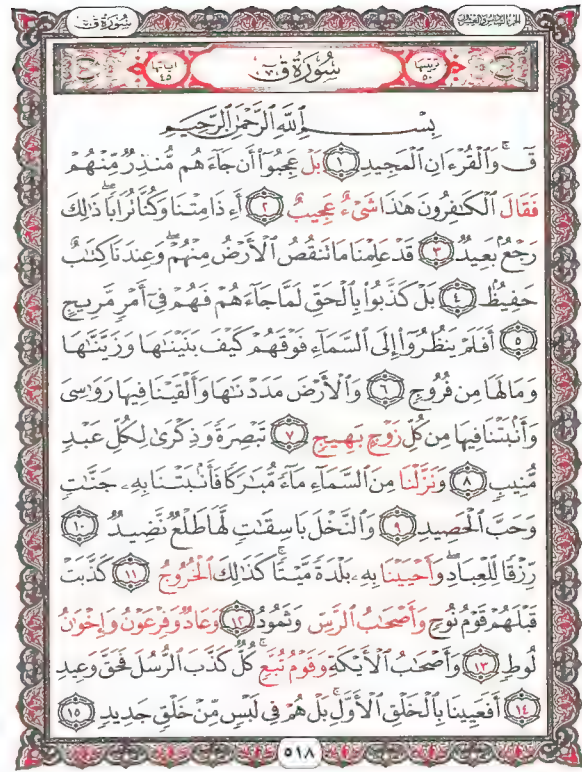 سُورَةُ قٓ الجزء السادس والعشرون
اياتها ٤٥ سُورَةُ قٓ ترتيبها ٥٠
بِسْمِ ٱللَّهِ ٱلرَّحْمَٰنِ ٱلرَّحِيمِ
قٓ ۚ وَٱلْقُرْءَانِ ٱلْمَجِيدِ ١ بَلْ عَجِبُوٓا۟ أَن جَآءَهُم مُّنذِرٌ مِّنْهُمْ
فَقَالَ ٱلْكَٰفِرُونَ هَٰذَا شَىْءٌ عَجِيبٌ ٢ أَءِذَا مِتْنَا وَكُنَّا تُرَابًا ۖ ذَٰلِكَ
رَجْعٌۢ بَعِيدٌ ٣ قَدْ عَلِمْنَا مَا تَنقُصُ ٱلْأَرْضُ مِنْهُمْ ۖ وَعِندَنَا كِتَٰبٌ
حَفِيظٌۢ ٤ بَلْ كَذَّبُوا۟ بِٱلْحَقِّ لَمَّا جَآءَهُمْ فَهُمْ فِىٓ أَمْرٍ مَّرِيجٍ
٥ أَفَلَمْ يَنظُرُوٓا۟ إِلَى ٱلسَّمَآءِ فَوْقَهُمْ كَيْفَ بَنَيْنَٰهَا وَزَيَّنَّٰهَا
وَمَا لَهَا مِن فُرُوجٍ ٦ وَٱلْأَرْضَ مَدَدْنَٰهَا وَأَلْقَيْنَا فِيهَا رَوَٰسِىَ
وَأَنۢبَتْنَا فِيهَا مِن كُلِّ زَوْجٍۭ بَهِيجٍ ٧ تَبْصِرَةً وَذِكْرَىٰ لِكُلِّ عَبْدٍ
مُّنِيبٍ ٨ وَنَزَّلْنَا مِنَ ٱلسَّمَآءِ مَآءً مُّبَٰرَكًا فَأَنۢبَتْنَا بِهِۦ جَنَّٰتٍ
وَحَبَّ ٱلْحَصِيدِ ٩ وَٱلنَّخْلَ بَاسِقَٰتٍ لَّهَا طَلْعٌ نَّضِيدٌ ١٠
رِّزْقًا لِّلْعِبَادِ ۖ وَأَحْيَيْنَا بِهِۦ بَلْدَةً مَّيْتًا ۚ كَذَٰلِكَ ٱلْخُرُوجُ ١١ كَذَّبَتْ
قَبْلَهُمْ قَوْمُ نُوحٍ وَأَصْحَٰبُ ٱلرَّسِّ وَثَمُودُ ١٢ وَعَادٌ وَفِرْعَوْنُ وَإِخْوَٰنُ
لُوطٍ ١٣ وَأَصْحَٰبُ ٱلْأَيْكَةِ وَقَوْمُ تُبَّعٍ ۚ كُلٌّ كَذَّبَ ٱلرُّسُلَ فَحَقَّ وَعِيدِ
١٤ أَفَعَيِينَا بِٱلْخَلْقِ ٱلْأَوَّلِ ۚ بَلْ هُمْ فِى لَبْسٍ مِّنْ خَلْقٍ جَدِيدٍ ١٥
٥١٨